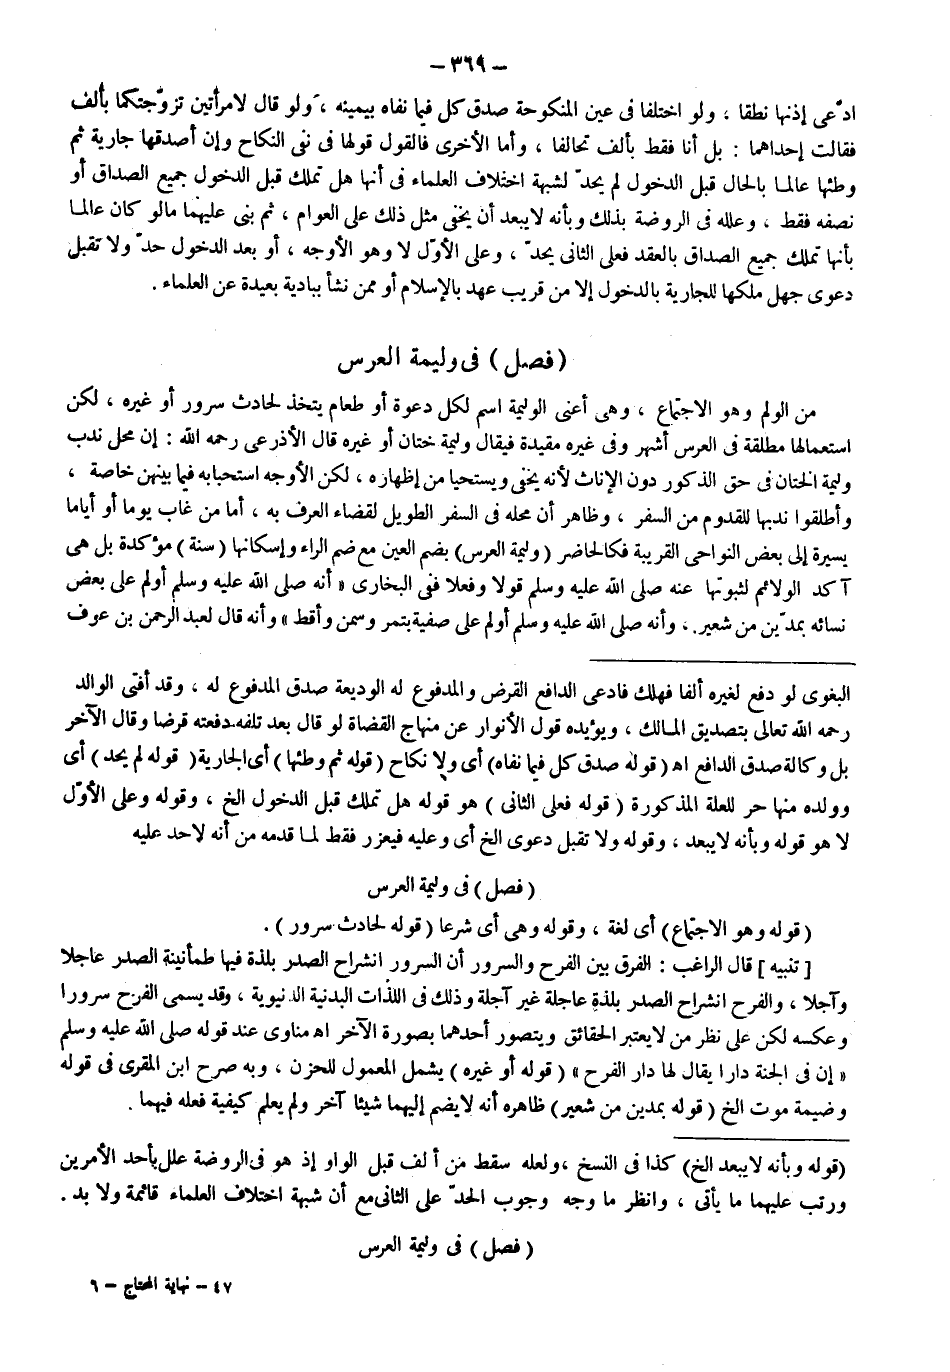 – ٣٦٩ –
ادّعى إذنها نطقا ، ولو اختلفا فى عين المنكوحة صدق كل فيما نفاه بيمينه ، ولو قال لامرأتين تزوّجتكما بألف
فقالت إحداهما : بل أنا فقط بألف تحالفا ، وأما الأخرى فالقول قولها فى نفى النكاح وإن أصدقها جارية ثم
وطئها عالما بالحال قبل الدخول لم يحدّ لشبهة اختلاف العلماء فى أنها هل تملك قبل الدخول جميع الصداق أو
نصفه فقط ، وعلله فى الروضة بذلك وبأنه لايبعد أن يخفى مثل ذلك على العوام ، ثم بنى عليهما مالو كان عالما
بأنها تملك جميع الصداق بالعقد فعلى الثانى يحدّ ، وعلى الأوّل لا وهو الأوجه ، أو بعد الدخول حدّ ولا تقبل
دعوى جهل ملكها للجارية بالدخول إلا من قريب عهد بالإسلام أو ممن نشأ ببادية بعيدة عن العلماء .
( فصل ) فى وليمة العرس
من الولم وهو الاجتماع ، وهى أعنى الوليمة اسم لكل دعوة أو طعام يتخذ لحادث سرور أو غيره ، لكن
استعمالها مطلقة فى العرس أشهر وفى غيره مقيدة فيقال وليمة ختان أو غيره قال الأذرعى رحمه الله : إن محل ندب
وليمة الختان فى حق الذكور دون الإناث لأنه يخفى ويستحيا من إظهاره ، لكن الأوجه استحبابه فيما بينهن خاصة ،
وأطلقوا ندبها للقدوم من السفر ، وظاهر أن محله فى السفر الطويل لقضاء العرف به ، أما من غاب يوما أو أياما
يسيرة إلى بعض النواحى القريبة فكالحاضر ( وليمة العرس) بضم العين مع ضم الراء وإسكانها ( سنة ) مؤكدة بل هى
آكد الولائم لثبوتها عنه صلى الله عليه وسلم قولا وفعلا ففى البخارى « أنه صلى الله عليه وسلم أولم على بعض
نسائه بمدّين من شعير . ، وأنه صلى الله عليه وسلم أولم على صفية بتمر وسمن وأقط » وأنه قال لعبد الرحمن بن عوف
البغوى لو دفع لغيره ألفا فهلك فادعى الدافع القرض والمدفوع له الوديعة صدق المدفوع له ، وقد أفتى الوالد
رحمه الله تعالى بتصديق المالك ، ويؤيده قول الأنوار عن منهاج القضاة لو قال بعد تلفه دفعته قرضا وقال الآخر
بل وكالة صدق الدافع اه ( قوله صدق كل فيما نفاه) أى ولا نكاح ( قوله ثم وطئها ) أى الجارية ( قوله لم يحد ) أى
وولده منها حر للعلة المذكورة ( قوله فعلى الثانى ) هو قوله هل تملك قبل الدخول الخ ، وقوله وعلى الأوّل
لا هو قوله وبأنه لايبعد ، وقوله ولا تقبل دعوى الخ أى وعليه فيعزر فقط لما قدمه من أنه لاحد عليه
( فصل ) فى وليمة العرس
( قوله وهو الاجتماع) أى لغة ، وقوله وهى أى شرعا ( قوله لحادث سرور ) .
[ تنبيه ] قال الراغب : الفرق بين الفرح والسرور أن السرور انشراح الصدر بلذة فيها طمأنينة الصدر عاجلا
وآجلا ، والفرح انشراح الصدر بلذة عاجلة غير آجلة وذلك فى اللذات البدنية الدنيوية ، وقد يسمى الفرح سرورا
وعكسه لكن على نظر من لايعتبر الحقائق ويتصور أحدهما بصورة الآخر اه مناوى عند قوله صلى الله عليه وسلم
« إن فى الجنة دارا يقال لها دار الفرح » ( قوله أو غيره ) يشمل المعمول للحزن ، وبه صرح ابن المقرى فى قوله
وضيمة موت الخ ( قوله بمدين من شعير) ظاهره أنه لايضم إليهما شيئا آخر ولم يعلم كيفية فعله فيهما .
(قوله وبأنه لايبعد الخ) كذا فى النسخ ، ولعله سقط من ألف قبل الواو إذ هو فى الروضة علل بأحد الأمرين
ورتب عليهما ما يأتى ، وانظر ما وجه وجوب الحدّ على الثانى مع أن شبهة اختلاف العلماء قائمة ولا بد .
( فصل ) فى وليمة العرس
٤٧ – نهاية المحتاج – ٦